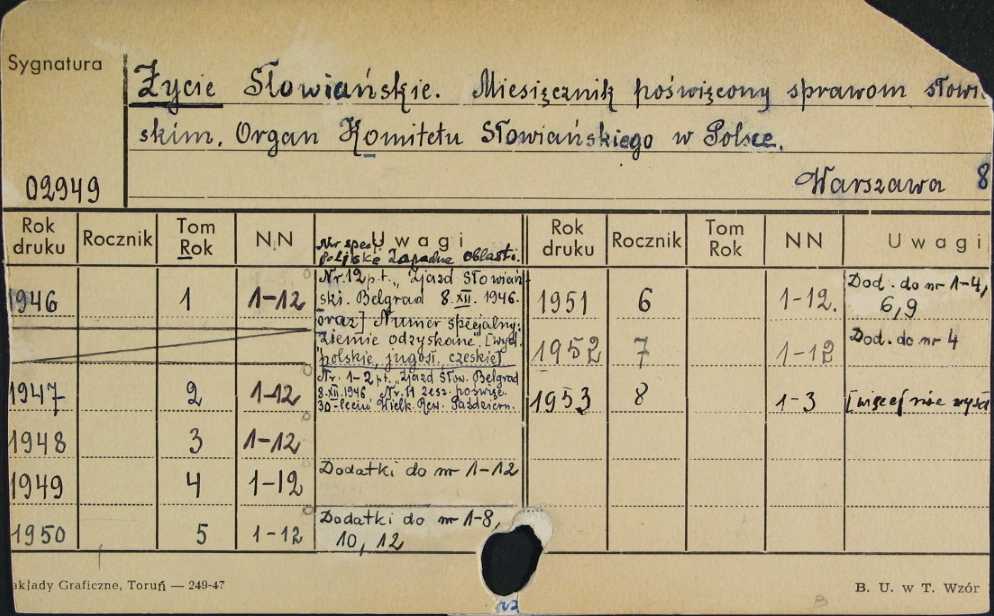 Sygnatura
Życie Słowiańskie. Miesięcznik poświęcony sprawom słowi
skim. Organ Komitetu Słowiańskiego w Polsce.
02949
Warszawa 8
Rok druku Rocznik Tom Rok NN Uwagi Rok druku Rocznik Tom Rok NN Uwagi
Nr spec.
poljske zapadne oblasti.
1946 1 1-12 Nr. 12 p.t. „Zjazd Słowiań-
ski. Belgrad 8.XII. 1946.
oraz] Numer specjalny:
Ziemie odzyskane". [wyd.
polskie, jugosł, czeskie]
1947 2 1-12 Nr. 1-2 p.t. „Zjazd Słow. Belgrad
8.XII.1946 Nr. 11 zesz. poświęc.
30-leciu Wielk. Rew. Październ.
1948 3 1-12
1949 4 1-12 Dodatki do nr 1-12
1950 5 1-12 Dodatki do nr 1-8,
10, 12
1951 6 1-12. Dod. do nr 1-4,
6,9
1952 7 1-12 Dod. do nr 4
1953 8 1-3 [więcej nie wysz
akłady Graficzne, Toruń — 249-47
B. U. w T. Wzór